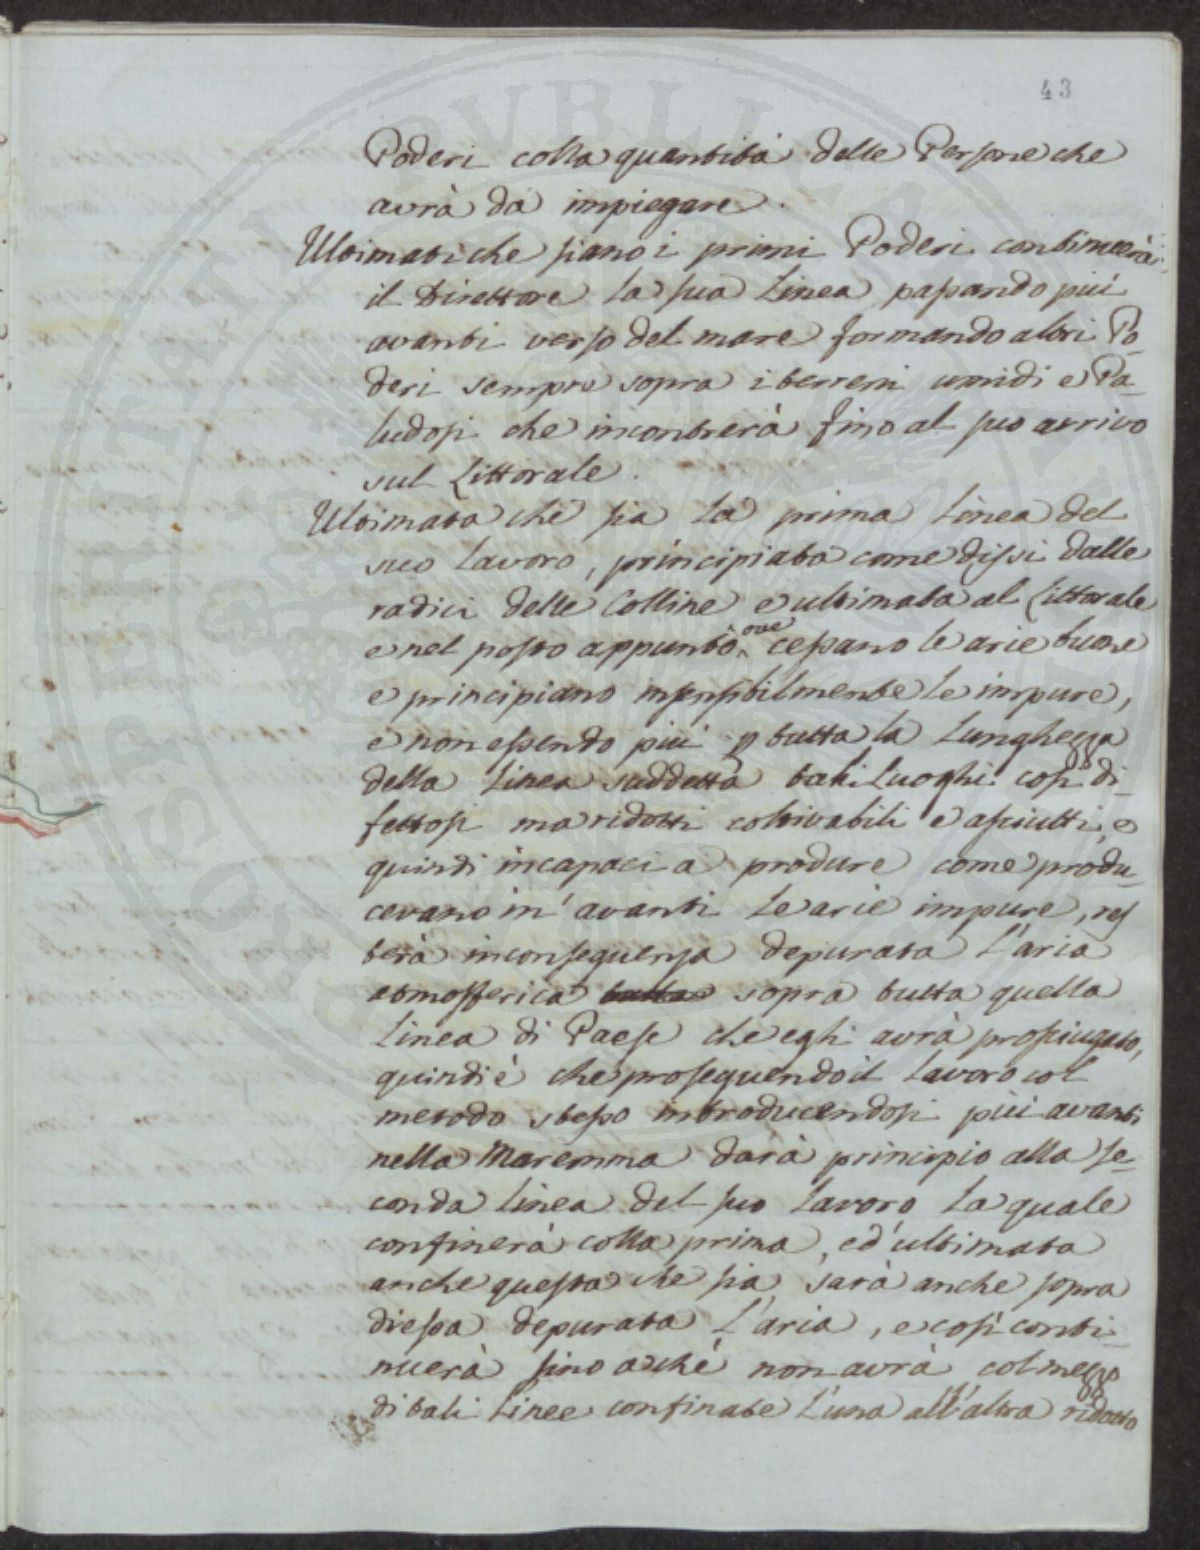 43
Poderi colla quantità delle Persone che
avrà da impiegare.
Ultimati che siano i primi Poderi continuerà
il Direttore la sua Linea passando piú
avanti verso del mare formando altri Po-
deri sempre sopra i terreni umidi e Pa-
ludosi che incontrerà fino al suo arrivo
sul Littorale.
Ultimata che sia la prima Linea del
suo lavoro, principiata come dissi dalle
radici delle Colline e ultimata al Littorale
e nel posto appunto ove cessano le arie buone
e principiano insensibilmente le impure,
e non essendo piú p tutta la Lunghezza
della Linea suddetta tali Luoghi cosi di-
fettosi ma ridotti coltivabili e asciutti, e
quindi incapaci a produre come produ-
cevano in' avanti le arie impure, res
terà inconseguenza depurata l'aria
atmosferica tutta sopra tutta quella
Linea di Paese che egli avrà prosciugato,
quindi è che proseguendo il Lavoro col
metodo stesso introducendosi piú avanti
nella Maremma darà principio alla se-
conda linea del suo lavoro la quale
confinerà colla prima, ed' ultimata
anche questa che sia, sarà anche sopra
di essa depurata l'aria, e cosí conti-
nuerà sino a ché non avrà col mezzo
di tali Linee confinate l'una all'altra ridotto
PROSPERITATI PVBLICAE